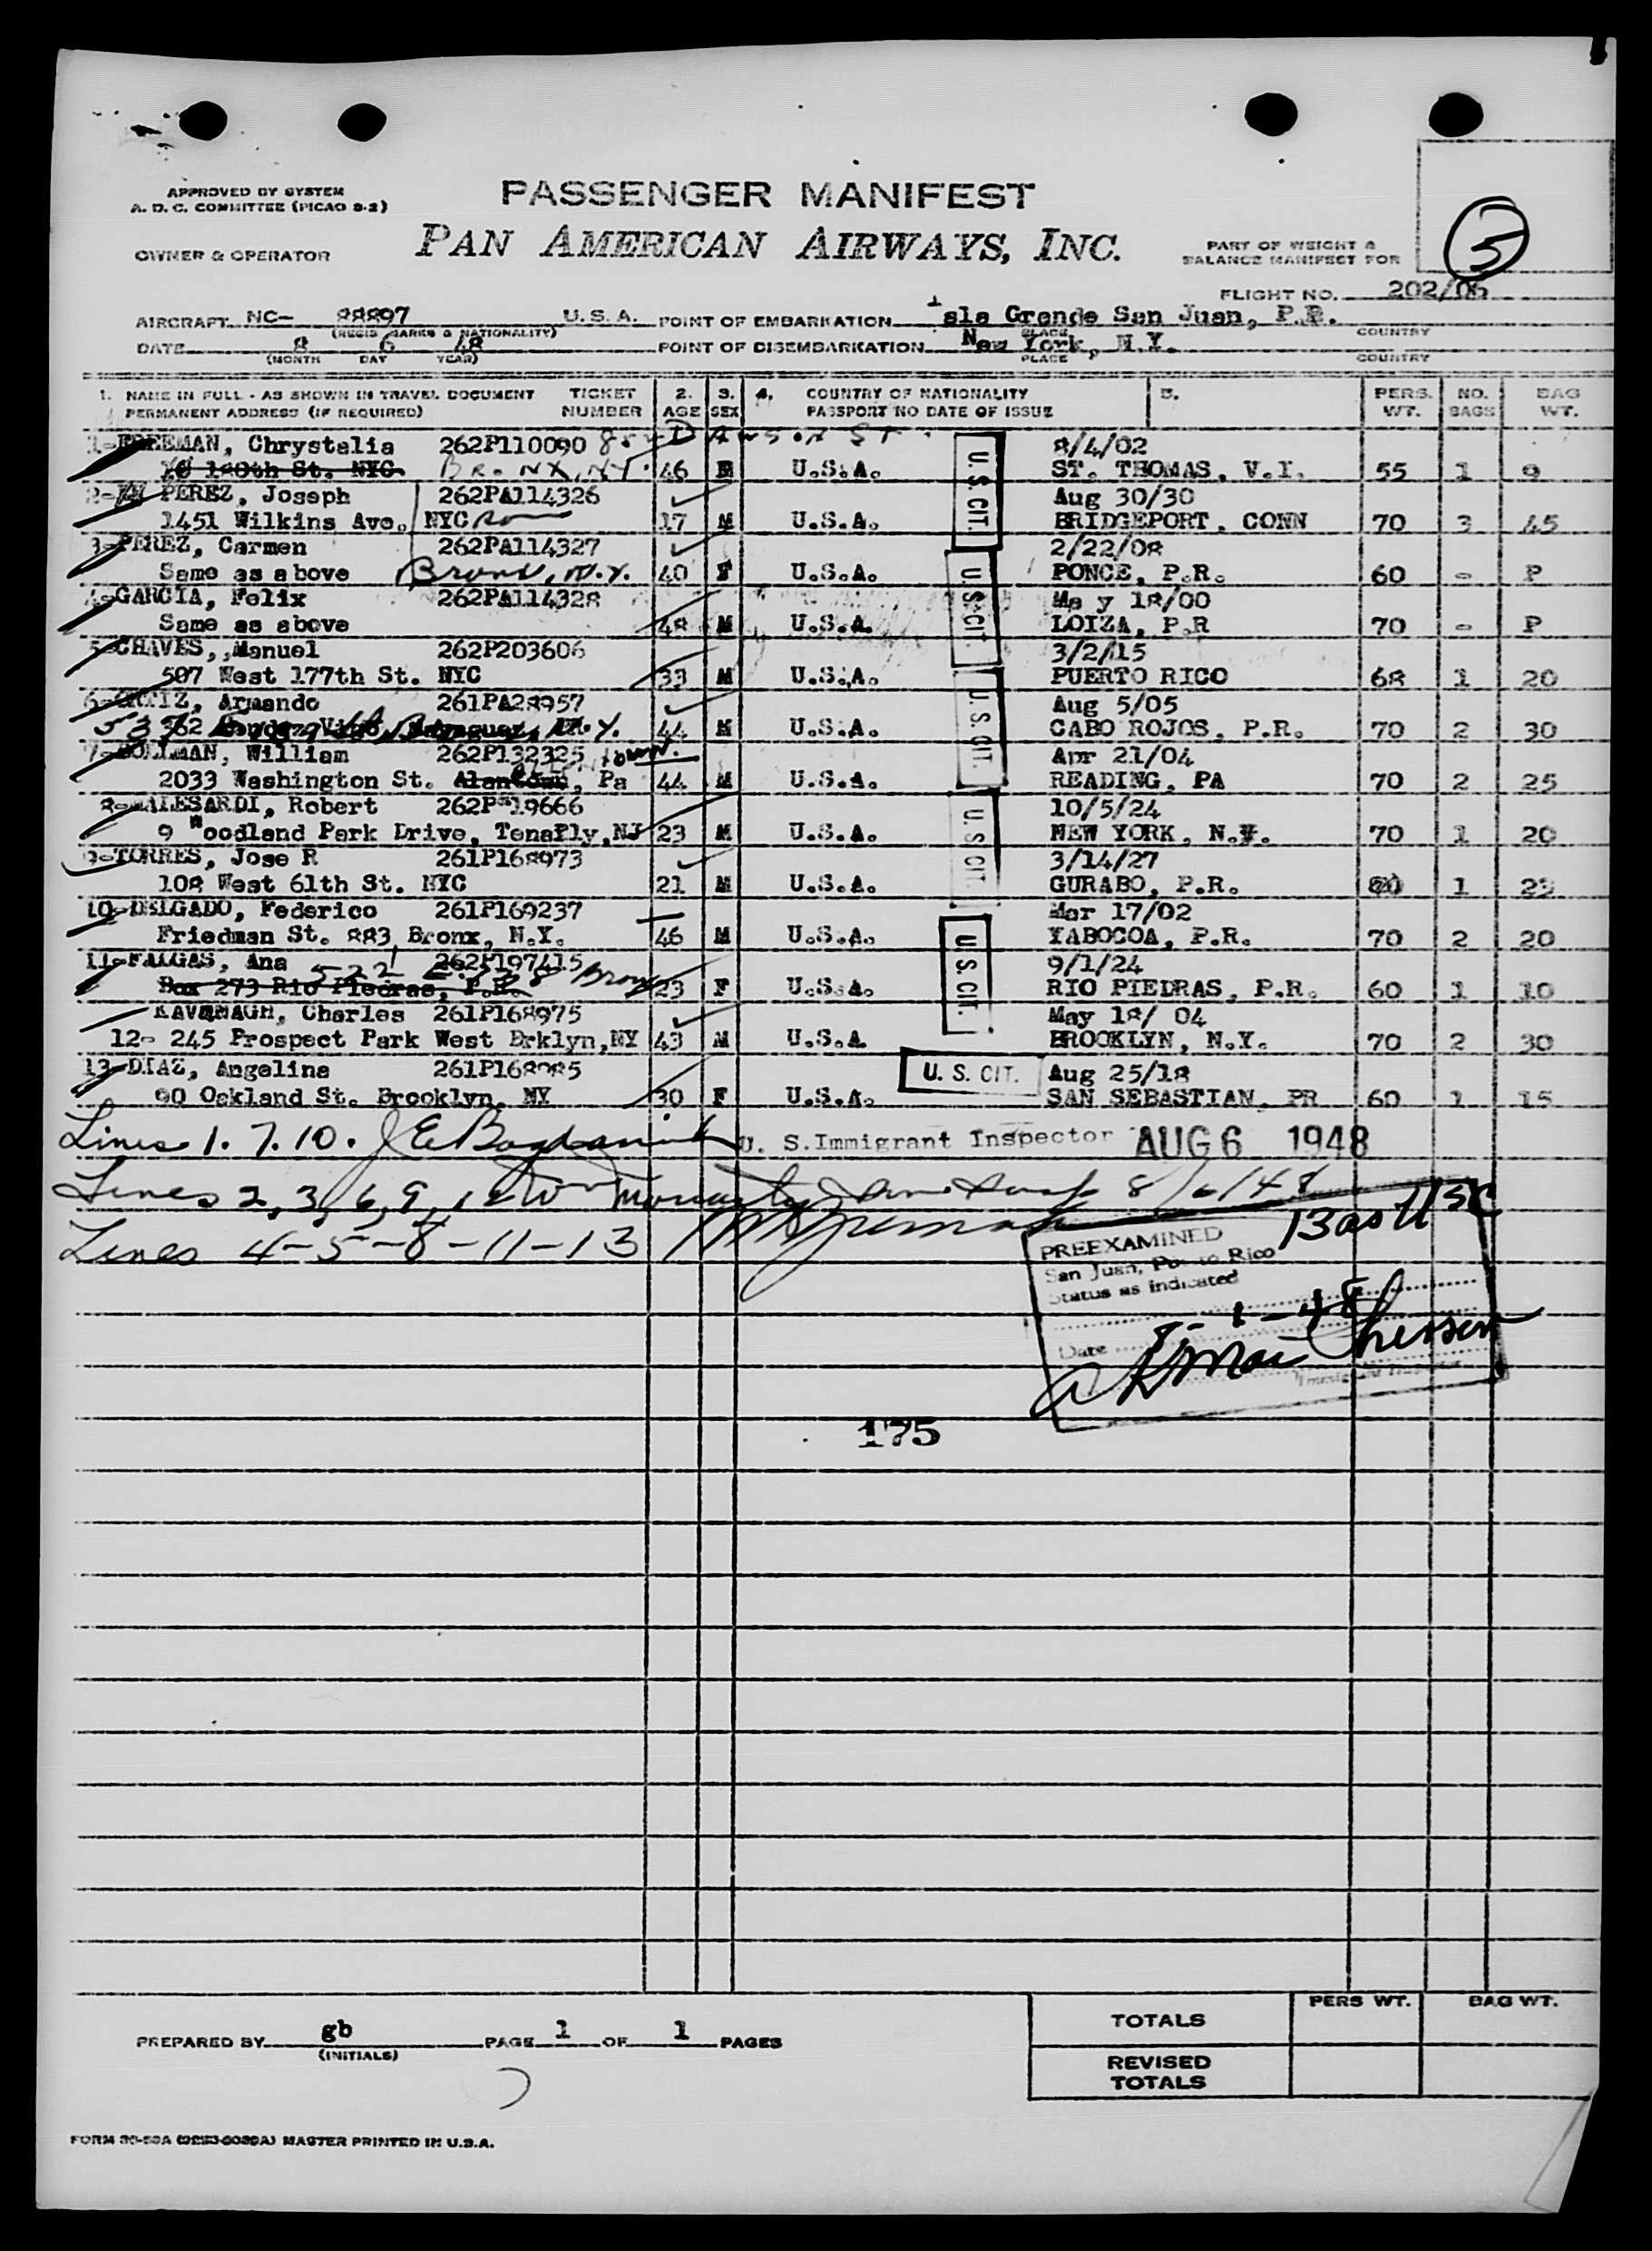 APPROVED BY SYSTEM
A. D. C. COMMITTEE (PICAO 8-2)
PASSENGER MANIFEST
PAN AMERICAN AIRWAYS, INC.
OWNER & OPERATOR
PART OF WEIGHT &
BALANCE MANIFEST FOR
5
FLIGHT NO. 202/06
AIRCRAFT NC- 88897 U. S. A. POINT OF EMBARKATION Isla Grande San Juan, P.R.
(REGIS MARKS & NATIONALITY) PLACE COUNTRY
DATE 8 6 48 POINT OF DISEMBARKATION New York, N.Y.
(MONTH DAY YEAR) PLACE COUNTRY
1. NAME IN FULL - AS SHOWN IN TRAVEL DOCUMENT TICKET 2. 3. 4. COUNTRY OF NATIONALITY 5. PERS. NO. BAG
PERMANENT ADDRESS (IF REQUIRED) NUMBER AGE SEX PASSPORT NO DATE OF ISSUE WT. BAGS WT.
1-FREEMAN, Chrystalia 262P110090 Dawson St. 8/4/02
140th St. NYC Bronx, NY. 46 U.S.A. ST. THOMAS, V.I. 55 1 9
2- PEREZ, Joseph 262PA114326 Aug 30/30
1451 Wilkins Ave. NYC 17 M U.S.A. BRIDGEPORT, CONN 70 3 45
3-PEREZ, Carmen 262PA114327 2/22/08
Same as above Bronx, N.Y. 40 F U.S.A. PONCE, P.R. 60 - P
4-GARCIA, Felix 262PA114328 Ma y 18/00
Same as above 48 M U.S.A. LOIZA, P.R 70 - P
5-CHAVES,,Manuel 262P203606 3/2/15
507 West 177th St. NYC 33 M U.S.A. PUERTO RICO 68 1 20
6-ORTIZ, Armando 261PA28957 Aug 5/05
N.Y. 44 M U.S.A. CABO ROJOS, P.R. 70 2 30
7-BOLLMAN, William 262P132325 Apr 21/04
2033 Washington St. Allentown, Pa 44 M U.S.A. READING, PA 70 2 25
8-MALESARDI, Robert 262P 19666 10/5/24
9 Woodland Park Drive, Tenafly,NJ 23 M U.S.A. NEW YORK, N.Y. 70 1 20
9-TORRES, Jose R 261P168973 3/14/27
108 West 61th St. NYC 21 M U.S.A. GURABO, P.R. 1 23
10-DELGADO, Federico 261P169237 Mar 17/02
Friedman St. 883 Bronx, N.Y. 46 M U.S.A. YABOCOA, P.R. 70 2 20
11-FALGAS, Ana 262P197415 9/1/24
522 E. 138 Bronx
Box 273 Rio Piedras, P.R. 23 F U.S.A. RIO PIEDRAS, P.R. 60 1 10
KAVANAGH, Charles 261P168975 May 18/ 04
12- 245 Prospect Park West Brklyn,NY 43 M U.S.A BROOKLYN, N.Y. 70 2 30
13-DIAZ, Angelina 261P168985 Aug 25/18
90 Oakland St. Brooklyn, NY 30 F U.S.A. SAN SEBASTIAN, PR 60 1 15
U. S. CIT.
U. S. CIT.
U. S. CIT.
U. S. CIT.
U. S. CIT.
U. S. CIT.
Lines 1. 7. 10. U. S. Immigrant Inspector AUG 6 1948
Lines 2, 3, 6, 9, 12 8/6/48
Lines 4-5-8-11-13
13 as USC
PREEXAMINED
San Juan, Puerto Rico
Status as indicated
Date
Immigrant Inspector
175
PREPARED BY gb PAGE 1 OF 1 PAGES
(INITIALS)
PERS WT. BAG WT.
TOTALS
REVISED
TOTALS
MASTER PRINTED IN U.S.A.